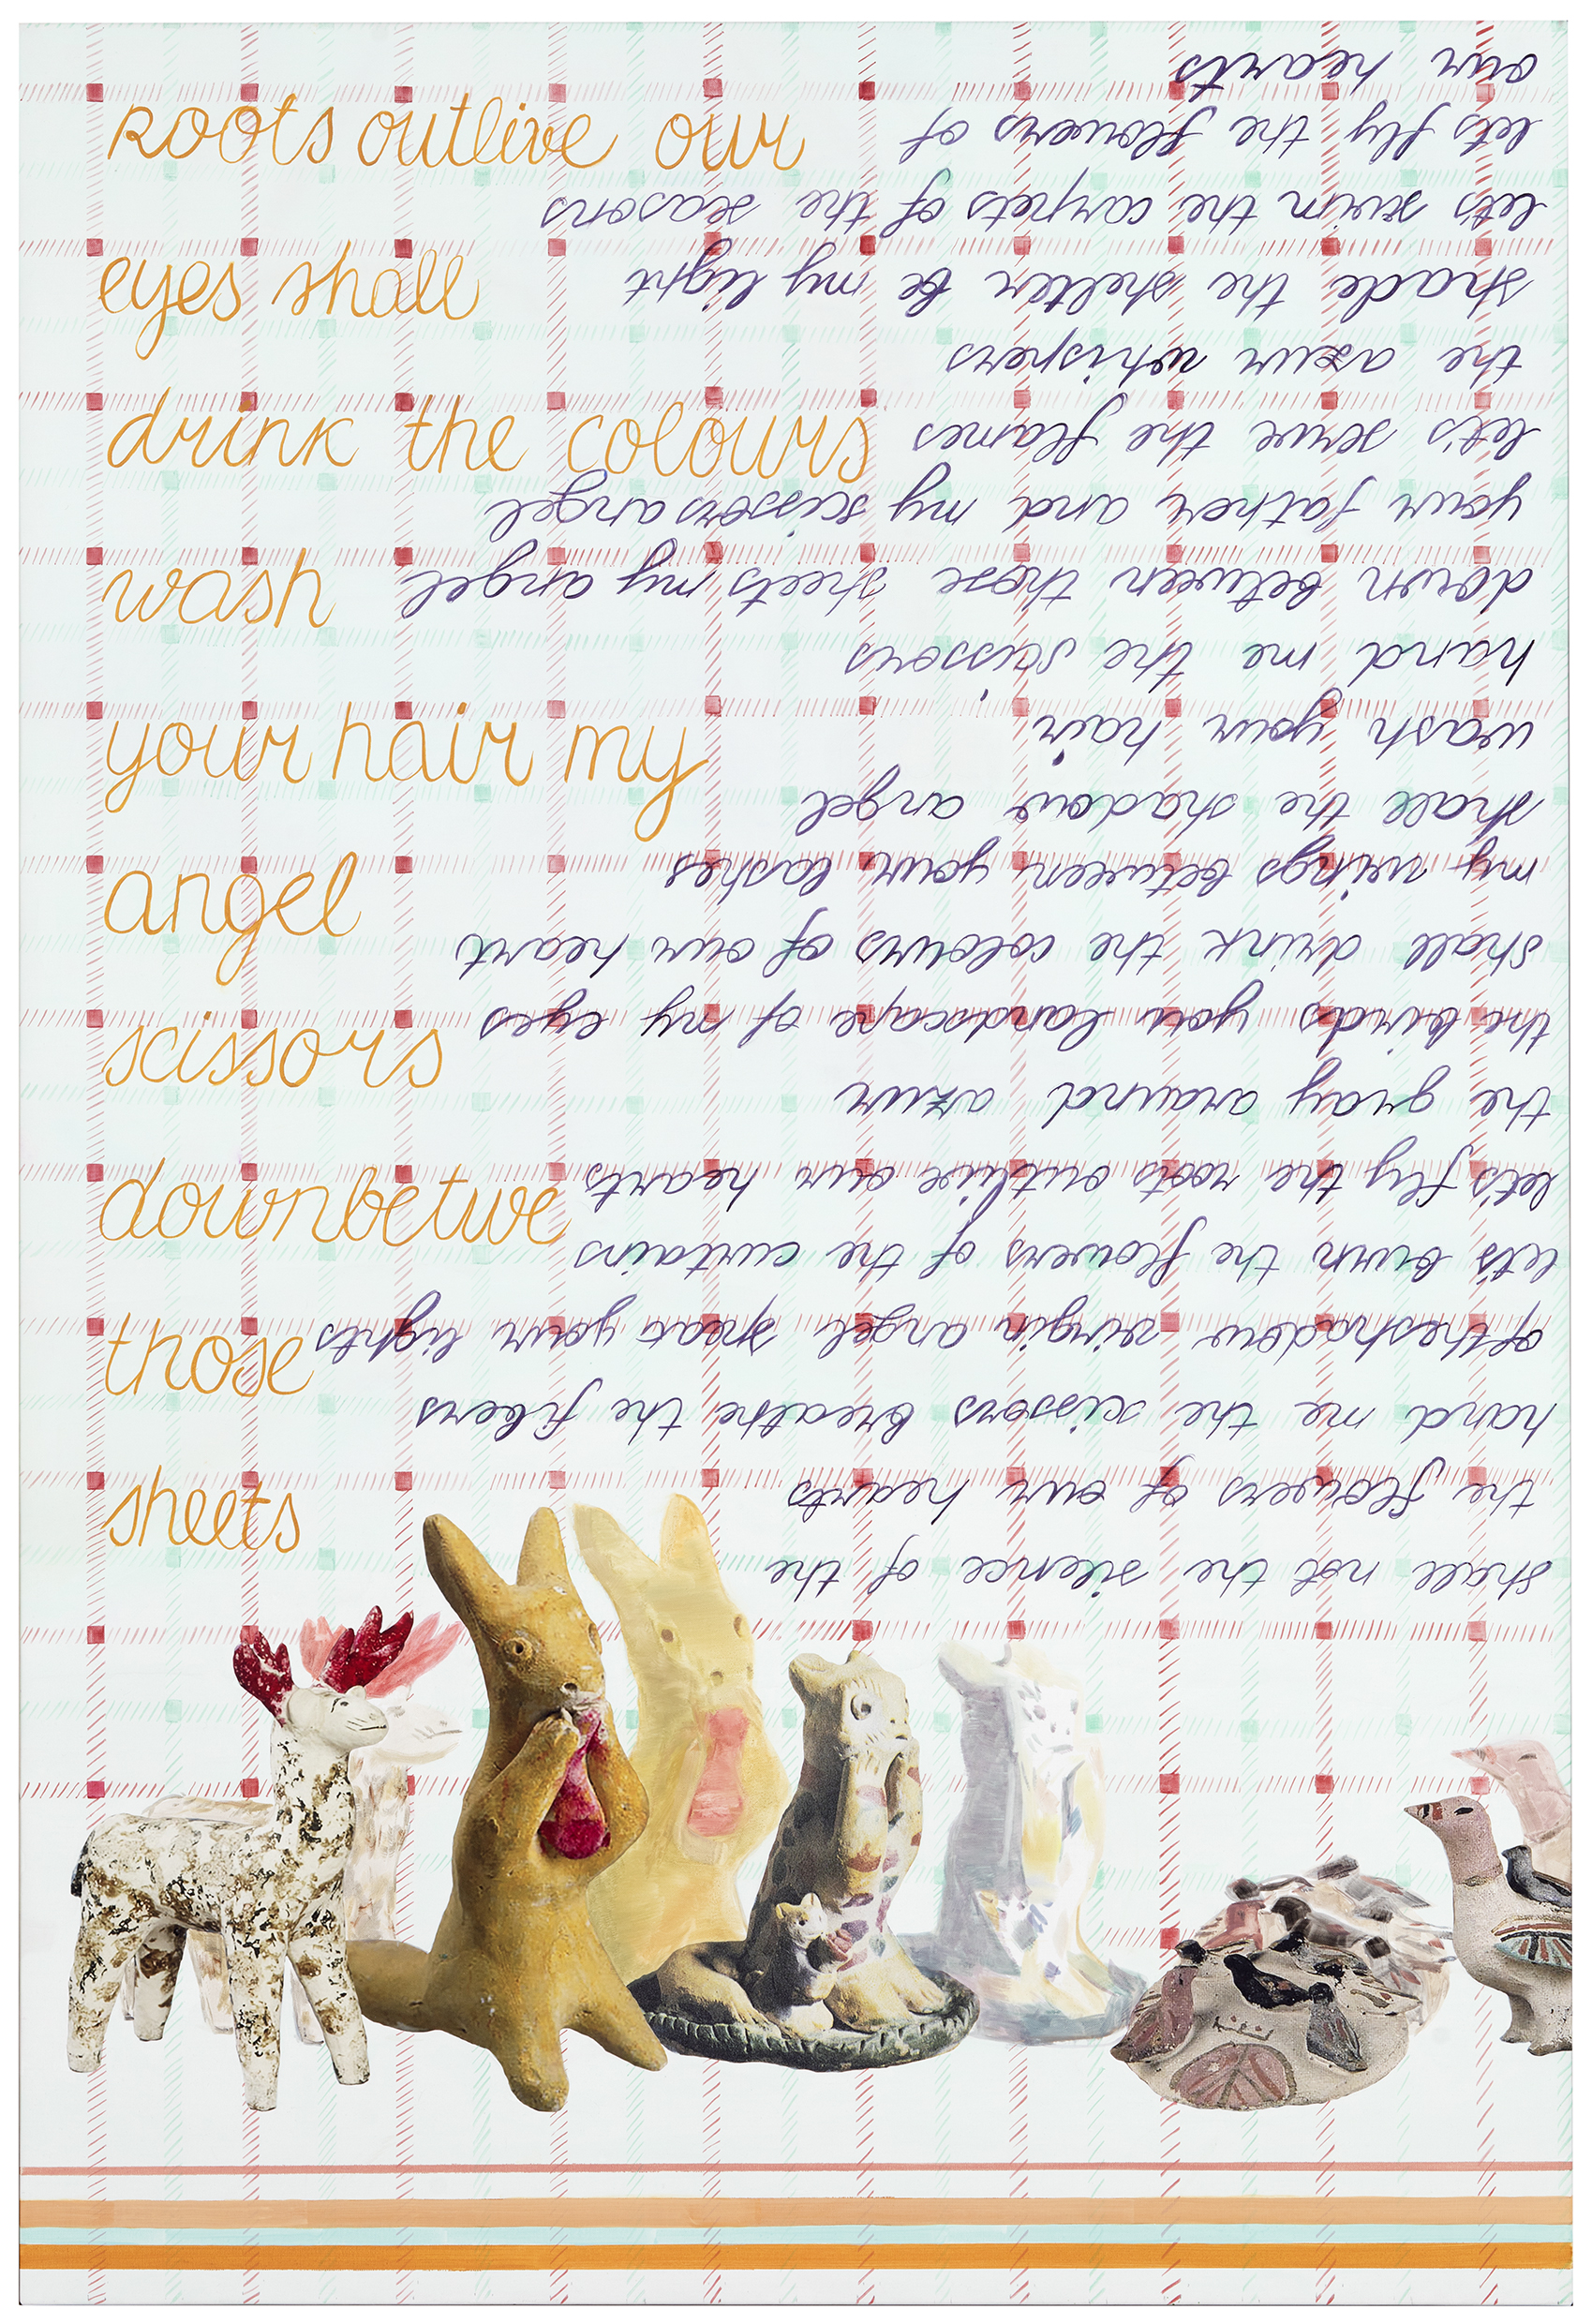 Roots outlive our
eyes shall
drink the colours
wash
your hair my
angel
scissors
down betwe
those
sheets
shall not the silence of the
the flowers of our hearts
hand me the scissors breathe the fibers
of the shadow virgin angel your lights
let's burn the flowers of the curtains
let's fly the roots outlive our hearts
the gray around azur
the birds you landscape of my eyes
shall drink the colours of our heart
my wings between your lashes
shall the shadow angel
wash your hair
hand me the scissors
down between those sheets my angel
your father and my scissors angel
let's serve the flames
the azur whispers
shade the shelter be my light
let's swim the carpets of the seasons
lets fly the flowers of
our hearts